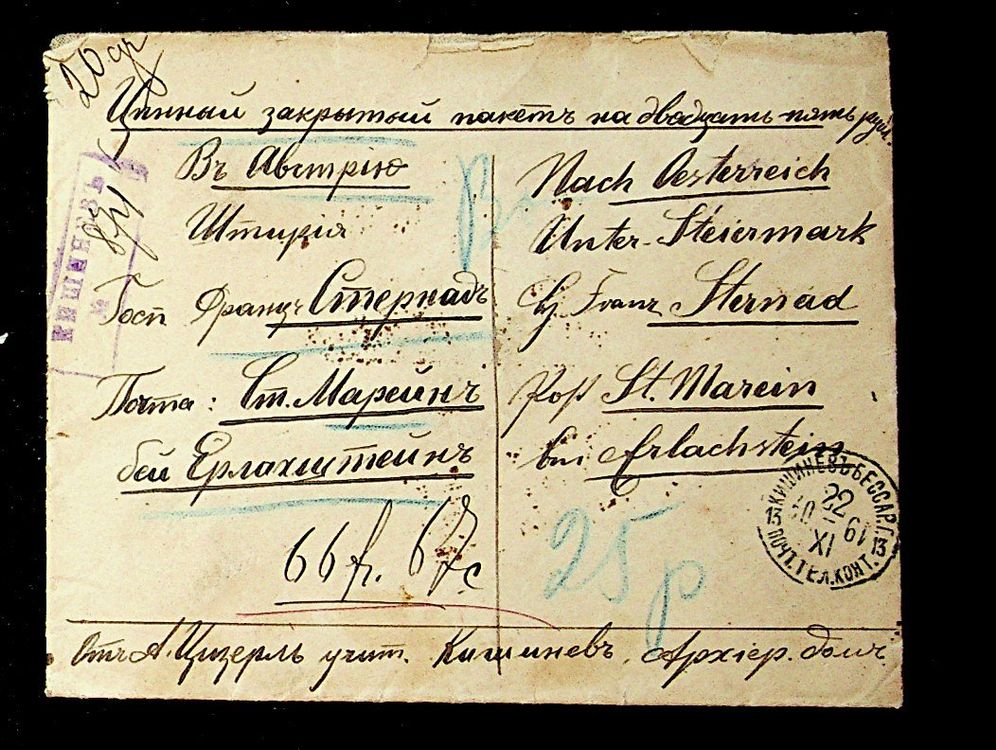 20 gr
Цѣнный закрытый пакетъ на двадцать-пять руб.
Въ Австрію
Nach Oesterreich
Штирія
Unter-Steiermark
Госп Францъ Стернадъ
Franz Sternad
Почта: Ст. Марейнъ
Post St. Marein
бей Ерлахштейнъ
bei Erlachstein
66 fr. 67 c
25 р
Отъ А. Цизерль учит. Кишиневъ, Архіер. домъ
КИШИНЕВЪ
№
КИШИНЕВЪ БЕССАР. Г.
22
XI
13 13
ПОЧТ. ТЕЛ. КОНТ.